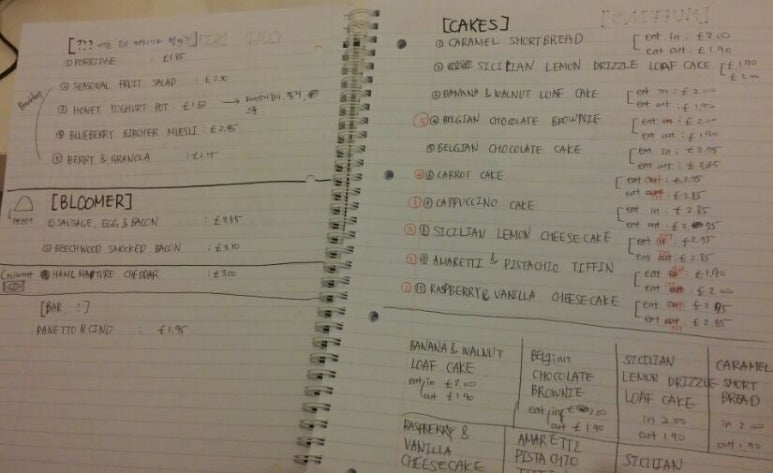 [???
① PORRIDGE : £1.85
② SEASONAL FRUIT SALAD : £2.90
Breakfast
③ HONEY YOGHURT POT £1.80 →
④ BLUEBERRY BIRCHER MUESLI : £2.95
⑤ BERRY & GRANOLA : £2.15
[BLOOMER]
① SAUSAGE, EGG & BACON : £3.35
② BEECHWOOD SMOCKED BACON : £3.10
HAM & MATURE CHEDDAR : £3.00
[BAR..?]
PANETTO N CINO : £1.95
[CAKES]
① CARAMEL SHORTBREAD [eat in : £2.00
eat out : £1.90
② SICILIAN LEMON DRIZZLE LOAF CAKE [£1.90
£2.00
③ BANANA & WALNUT LOAF CAKE [eat in : £2.00
eat out : £1.90
④ BELGIAN CHOCOLATE BROWNIE [eat in : £2.00
eat out : £1.90
⑤ BELGIAN CHOCOLATE CAKE [eat in : £2.95
eat out : £2.85
⑥ CARROT CAKE [eat : £2.95
eat : £2.85
CAPPUCCINO CAKE [eat in : £2.85
eat out : £2.95
⑧ SICILIAN LEMON CHEESECAKE [eat : £2.95
eat out : £2.85
⑨ AMARETTI & PISTACHIO TIFFIN [eat : £1.90
eat : £2.00
⑩ RASPBERRY & VANILLA CHEESECAKE [eat : £2.95
eat : £2.85
BANANA & WALNUT
LOAF CAKE
eat in £2.00
out £1.90
Belgian
CHOCOLATE
BROWNIE
eat in £2.00
out £1.90
SICILIAN
LEMON DRIZZLE
LOAF CAKE
in 2.00
out 1.90
CARAMEL
SHORT
BREAD
in 2.00
out 1.90
RASPBERRY &
VANILLA
CHEESECAKE
AMARETTI
PISTACHIO
TIFFIN
SICILIAN